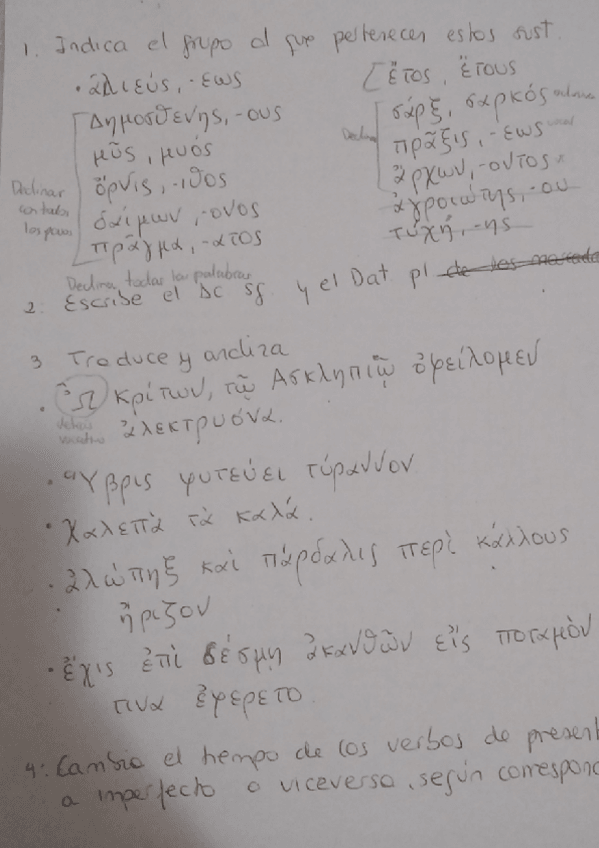 1. Indica el grupo al que pertenecen estos sust.
· ἁλιεύς, -εως
Δημοσθένης, -ους
μῦς, μυός
ὄρνις, -ιθος
δαίμων, -ονος
πρᾶγμα, -ατος
Declinar
con todos
los pasos
ἔτος, ἔτους
σάρξ, σαρκός
πρᾶξις, -εως
ἄρχων, -οντος
ἀγροιώτης, -ου
τύχή, -ης
Declina todas las palabras
2. Escribe el Ac sg. y el Dat pl
3 Traduce y analiza
· Ὦ Κρίτων, τῷ Ἀσκληπιῷ ὀφείλομεν
ἀλεκτρυόνα.
· Ὕβρις φυτεύει τύραννον
· Χαλεπὰ τὰ καλά.
· ἀλώπηξ καὶ πάρδαλις περὶ κάλλους
ἤριζον
· ἔχις ἐπὶ δέσμῃ ἀκανθῶν εἰς ποταμὸν
τινα ἐφερετο
4: Cambia el tiempo de los verbos de present
a imperfecto o viceversa, según correspond